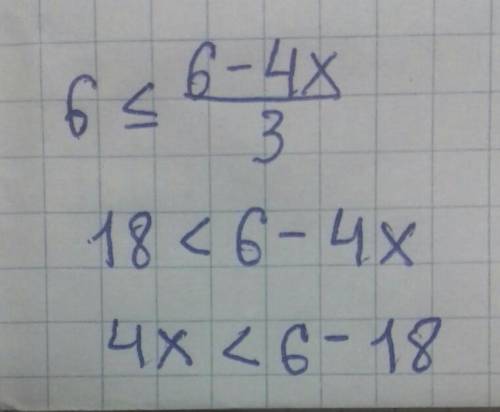 6 ≤ (6 - 4x)/3
18 < 6 - 4x
4x < 6 - 18